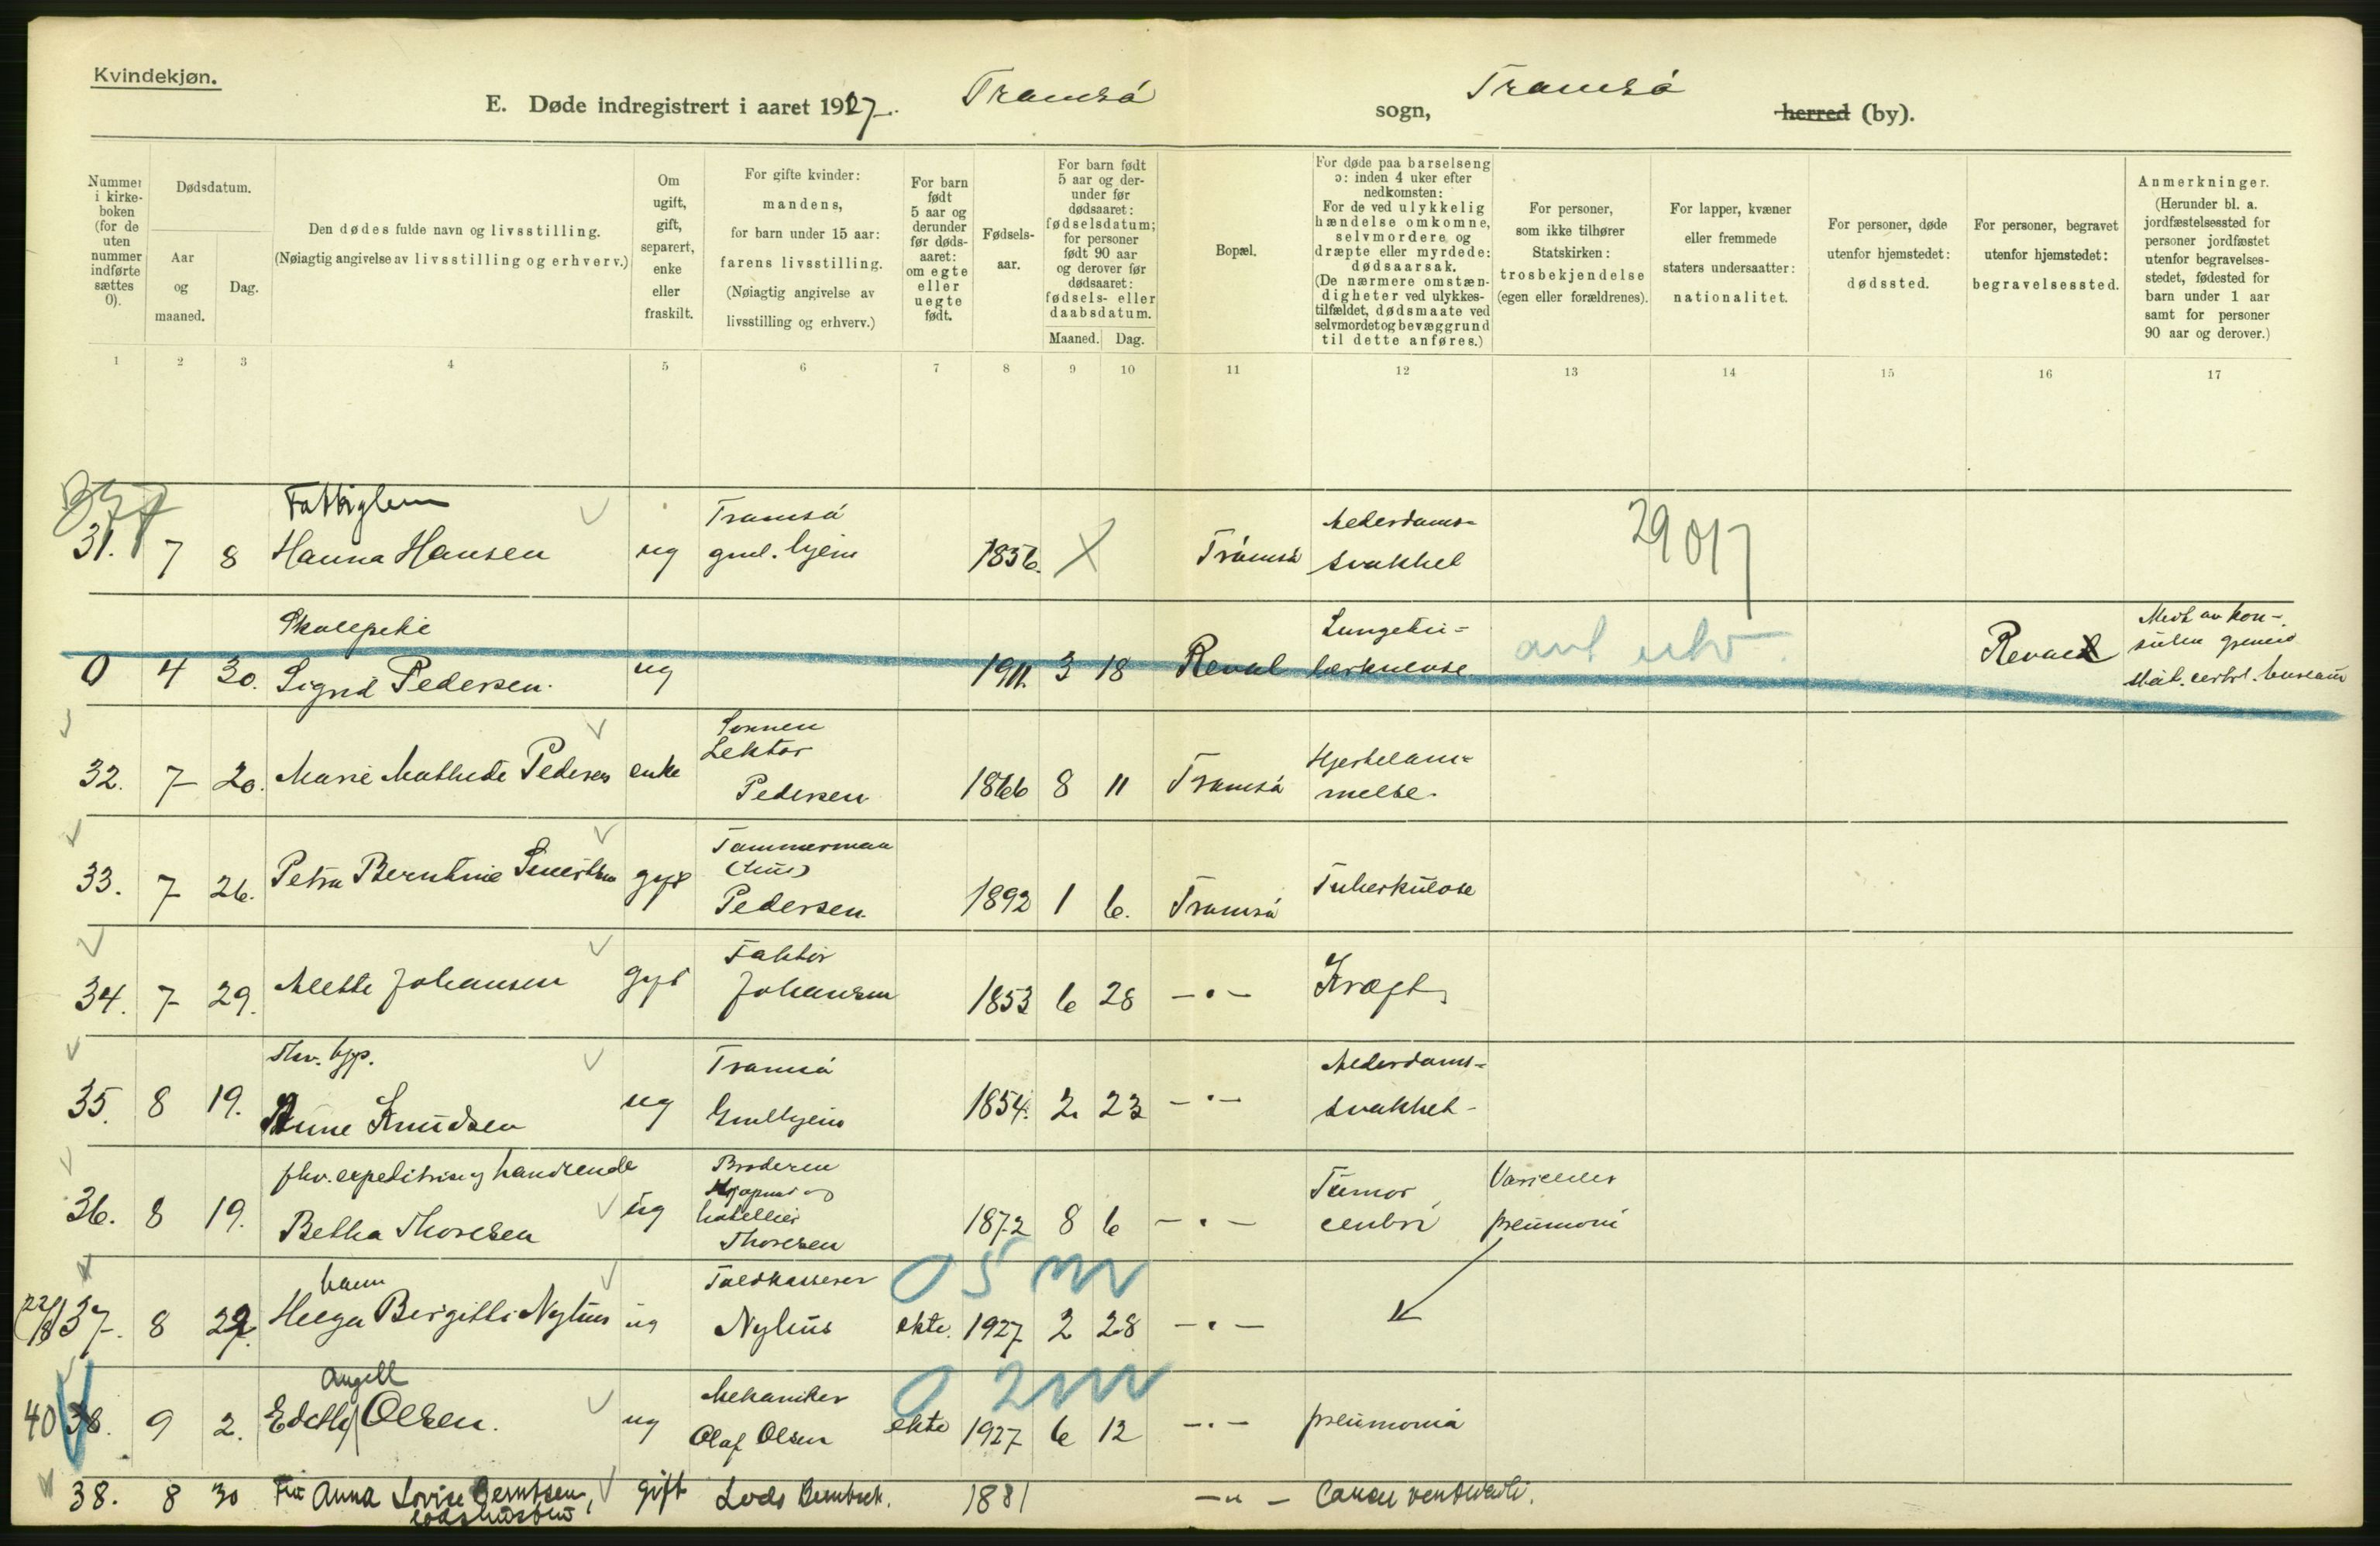 Kvindekjøn.
E. Døde indregistrert i aaret 1927. Tromsø sogn, Tromsø herred (by).
Nummer i kirke-boken (for de uten nummer indførte sættes 0).
Dødsdatum.
Aar og maaned.
Dag.
Den dødes fulde navn og livsstilling.
(Nøiagtig angivelse av livsstilling og erhverv.)
Om ugift, gift, separert, enke eller fraskilt.
For gifte kvinder: mandens, for barn under 15 aar: farens livsstilling. (Nøiagtig angivelse av livsstilling og erhverv.)
For barn født 5 aar og derunder før døds-aaret: om egte eller uegte født.
Fødsels-aar.
For barn født 5 aar og der-under før dødsaaret: fødselsdatum; for personer født 90 aar og derover før dødsaaret: fødsels- eller daabsdatum.
Maaned. Dag.
Bopæl.
For døde paa barselseng ɔ: inden 4 uker efter nedkomsten:
For de ved ulykkelig hændelse omkomne, selvmordere og dræpte eller myrdede: dødsaarsak.
(De nærmere omstæn-digheter ved ulykkes-tilfældet, dødsmaate ved selvmordet og bevæggrund til dette anføres.)
For personer, som ikke tilhører Statskirken: trosbekjendelse (egen eller forældrenes).
For lapper, kvæner eller fremmede staters undersaatter: nationalitet.
For personer, døde utenfor hjemstedet: dødssted.
For personer, begravet utenfor hjemstedet: begravelsessted.
Anmerkninger.
(Herunder bl. a. jordfæstelsessted for personer jordfæstet utenfor begravelses-stedet, fødested for barn under 1 aar samt for personer 90 aar og derover.)
1 2 3 4 5 6 7 8 9 10 11 12 13 14 15 16 17
Fattiglem Tromsø Alderdoms-
31. 7 8 Hanna Hansen ug gml. hjem 1856. Tromsø svakhet
Skolepike Lungetu-
0 4 30. Sigrid Pedersen. ug 1911. 3 18 Reval berkulose Reval
Lektor Hjertelam-
32. 7 20. Marie Mathilde Pedersen enke Pedersen 1866 8 11 Tromsø melse.
Tømmermann
33. 7 26. Petra Berntine gift Pedersen 1892 1 6. Tromsø Tuberkulose
Faktor
34. 7 29. Alette Johansen gift Johansen 1853 6 28 -"- Kræft
Tromsø Alderdoms-
35. 8 19. Anne Knudsen ug Gmlhjem 1854. 2 23 -"- svakhet
fhv. expeditrise handlende Broderen Tumor
36. 8 19. Betha Thoresen ug Thoresen 1872 8 6 -"- pneumoni
05 m
barn Toldkasserer
22/8 37. 8 22. Helga Birgitte Nyhus ug Nyhus ekte. 1927 2 28 -"-
02 m
Angell Mekaniker
40 38. 9 2. Edethy Olsen. ug Olaf Olsen ekte 1927 6 12 -"- pneumonia
38. 8 30 Fru Anna Lovise Berntsen, gift Lods Berntsen. 1881 -"- Cancer ventriculi.
lodshustru